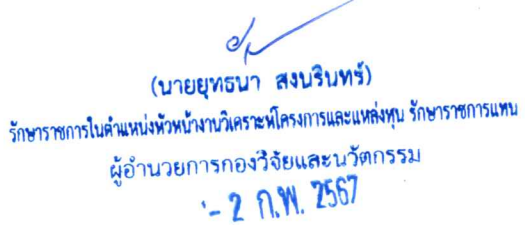 (นายยุทธนา สงนรินทร์)
รักษาราชการในตำแหน่งหัวหน้างานวิเคราะห์โครงการและแหล่งทุน รักษาราชการแทน
ผู้อำนวยการกองวิจัยและนวัตกรรม
- 2 ก.พ. 2567